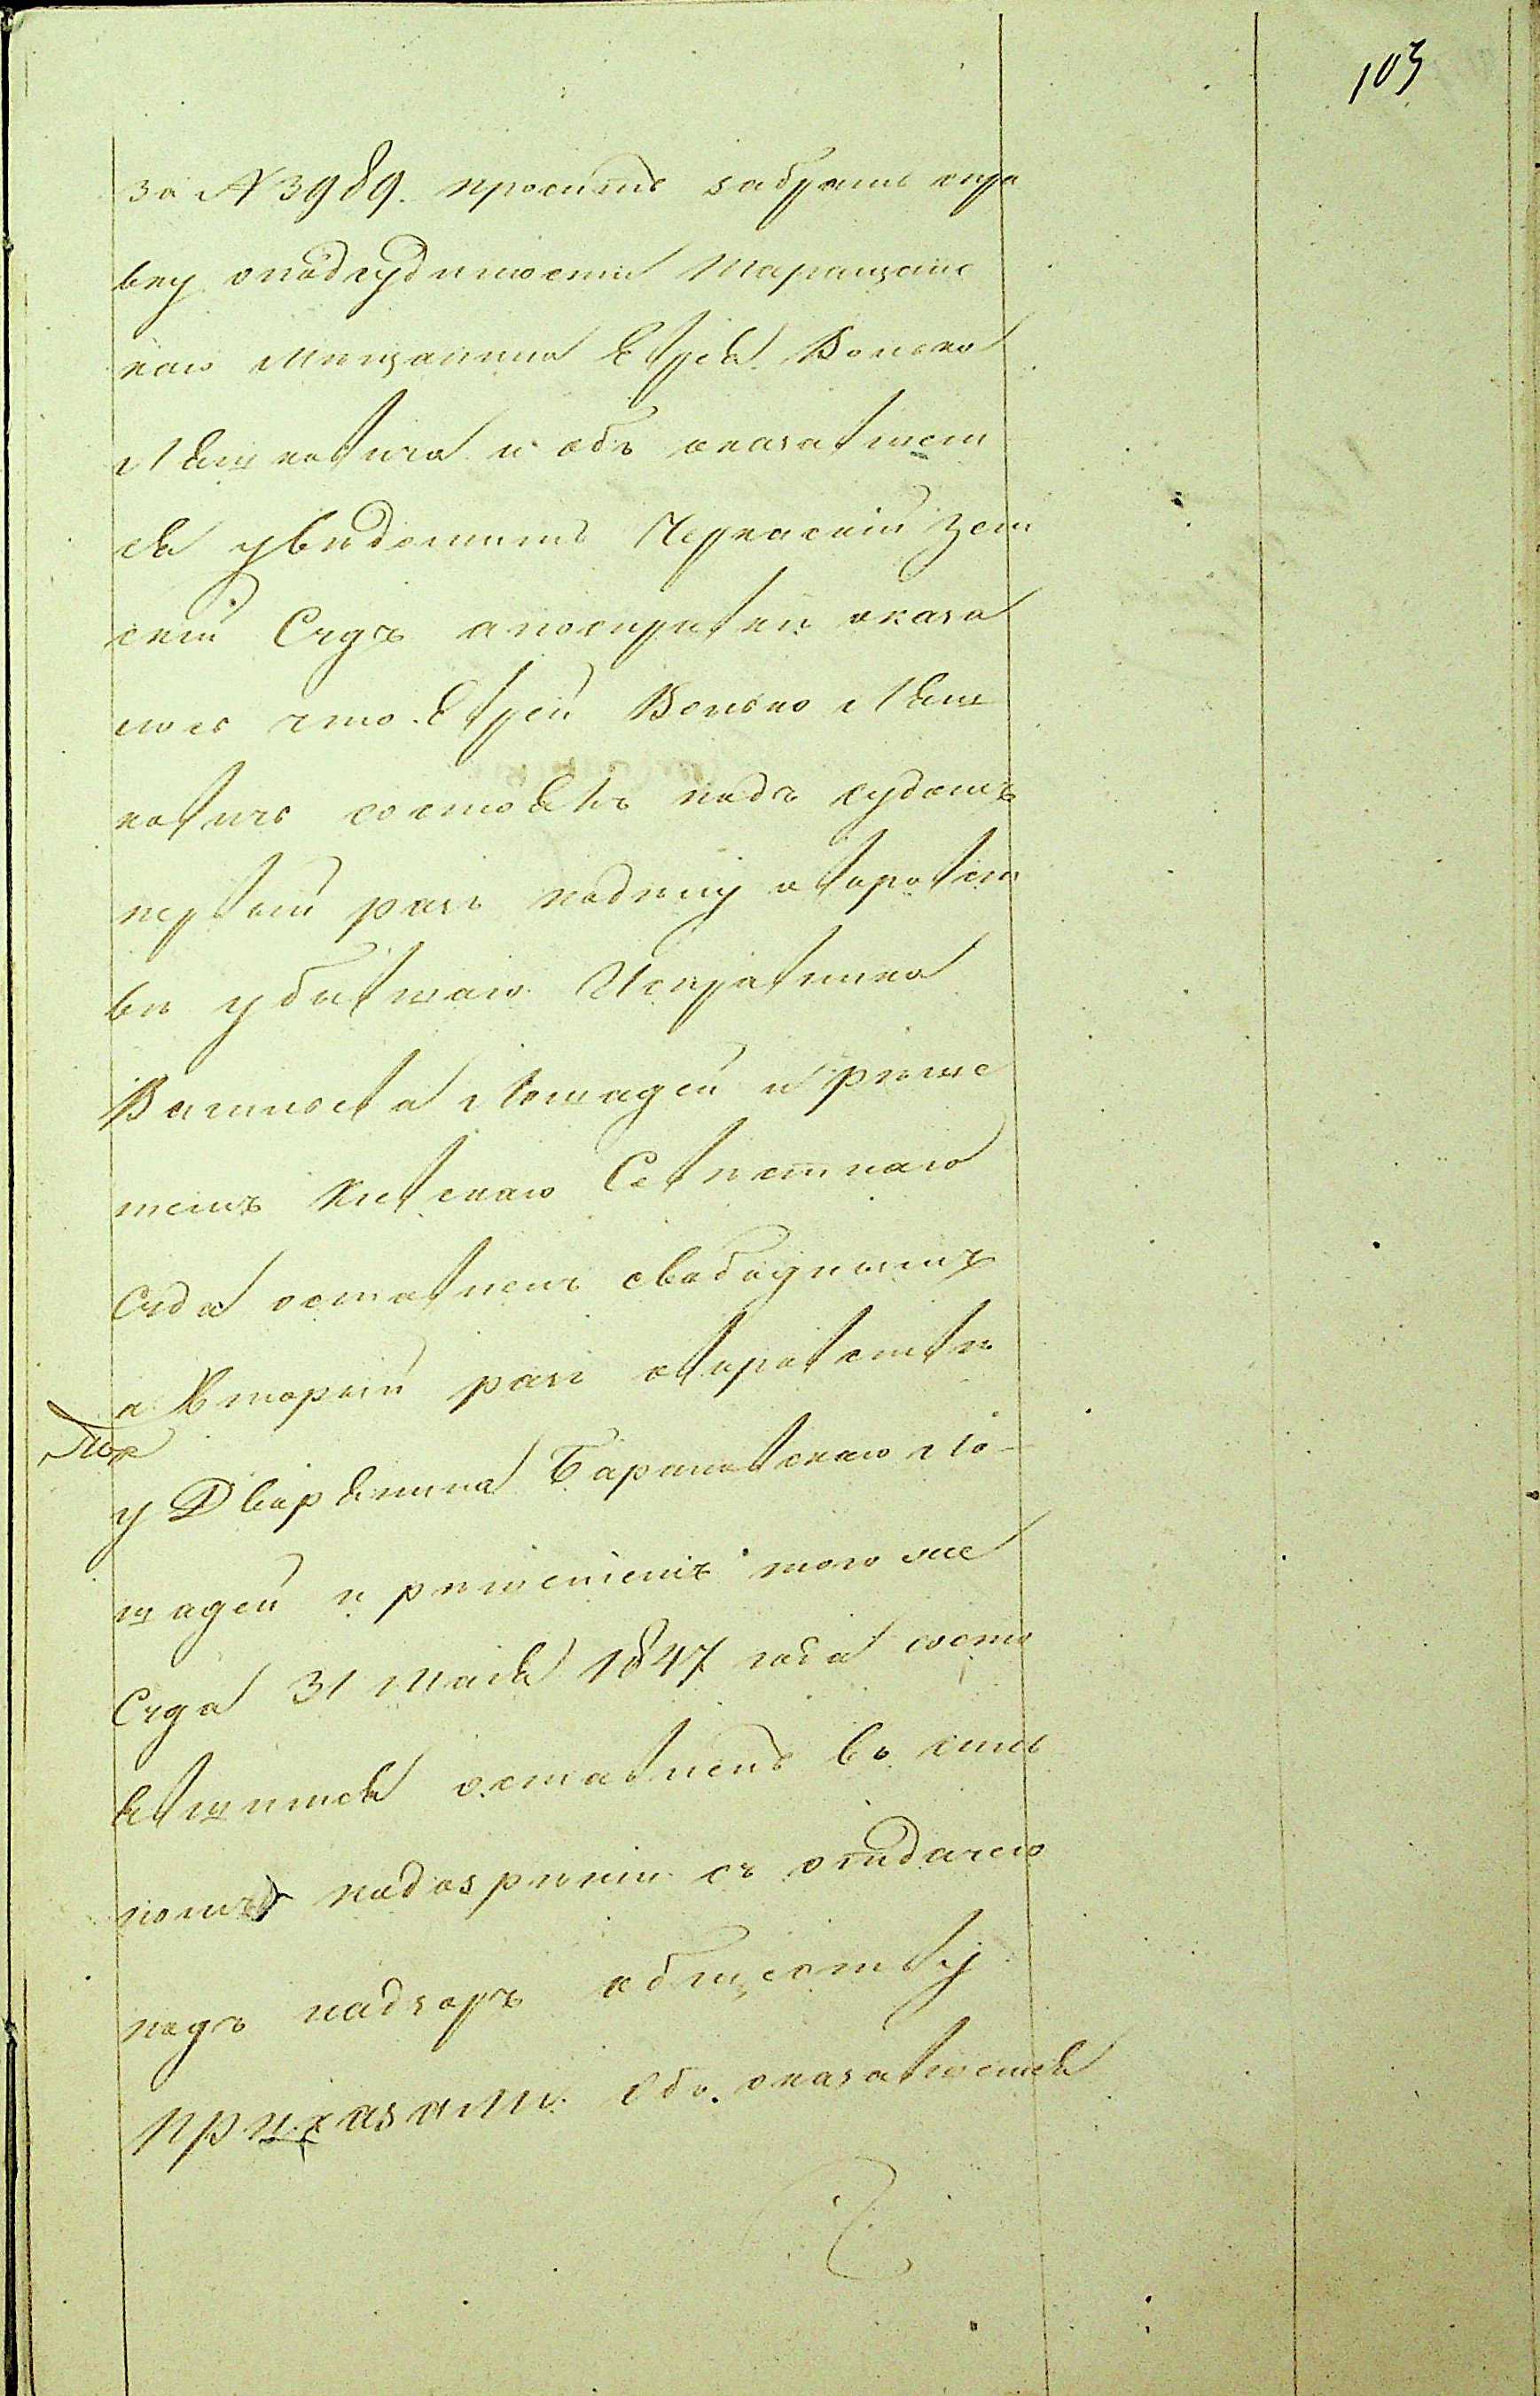 103
за № 3989. просить забрать спра
вку о подсудимости Таращанс
каго мещанина Еврея Волько
Ляшковича и объ оказавшем
ся увѣдомить Черкаскій Зем
скій Судъ а по справкѣ оказа
лось что Еврей Волько Ляш
ковичъ состоялъ подъ судомъ
первый разъ по дѣлу о воровст
вѣ у бывшаго Исправника
Лошадей и рѣше
ніемъ Кіевскаго Совѣстнаго
Суда оставленъ свободнымъ
а вторый разъ о воровствѣ
у Дворянина Барановскаго Ло-
шадей и рѣшеніемъ того же
Суда 31 Мая 1847 года состо
явшимся оставленъ въ силь
номъ подозрѣніи съ отдачею
подъ надзоръ обществу
приказали: Объ оказавшемся